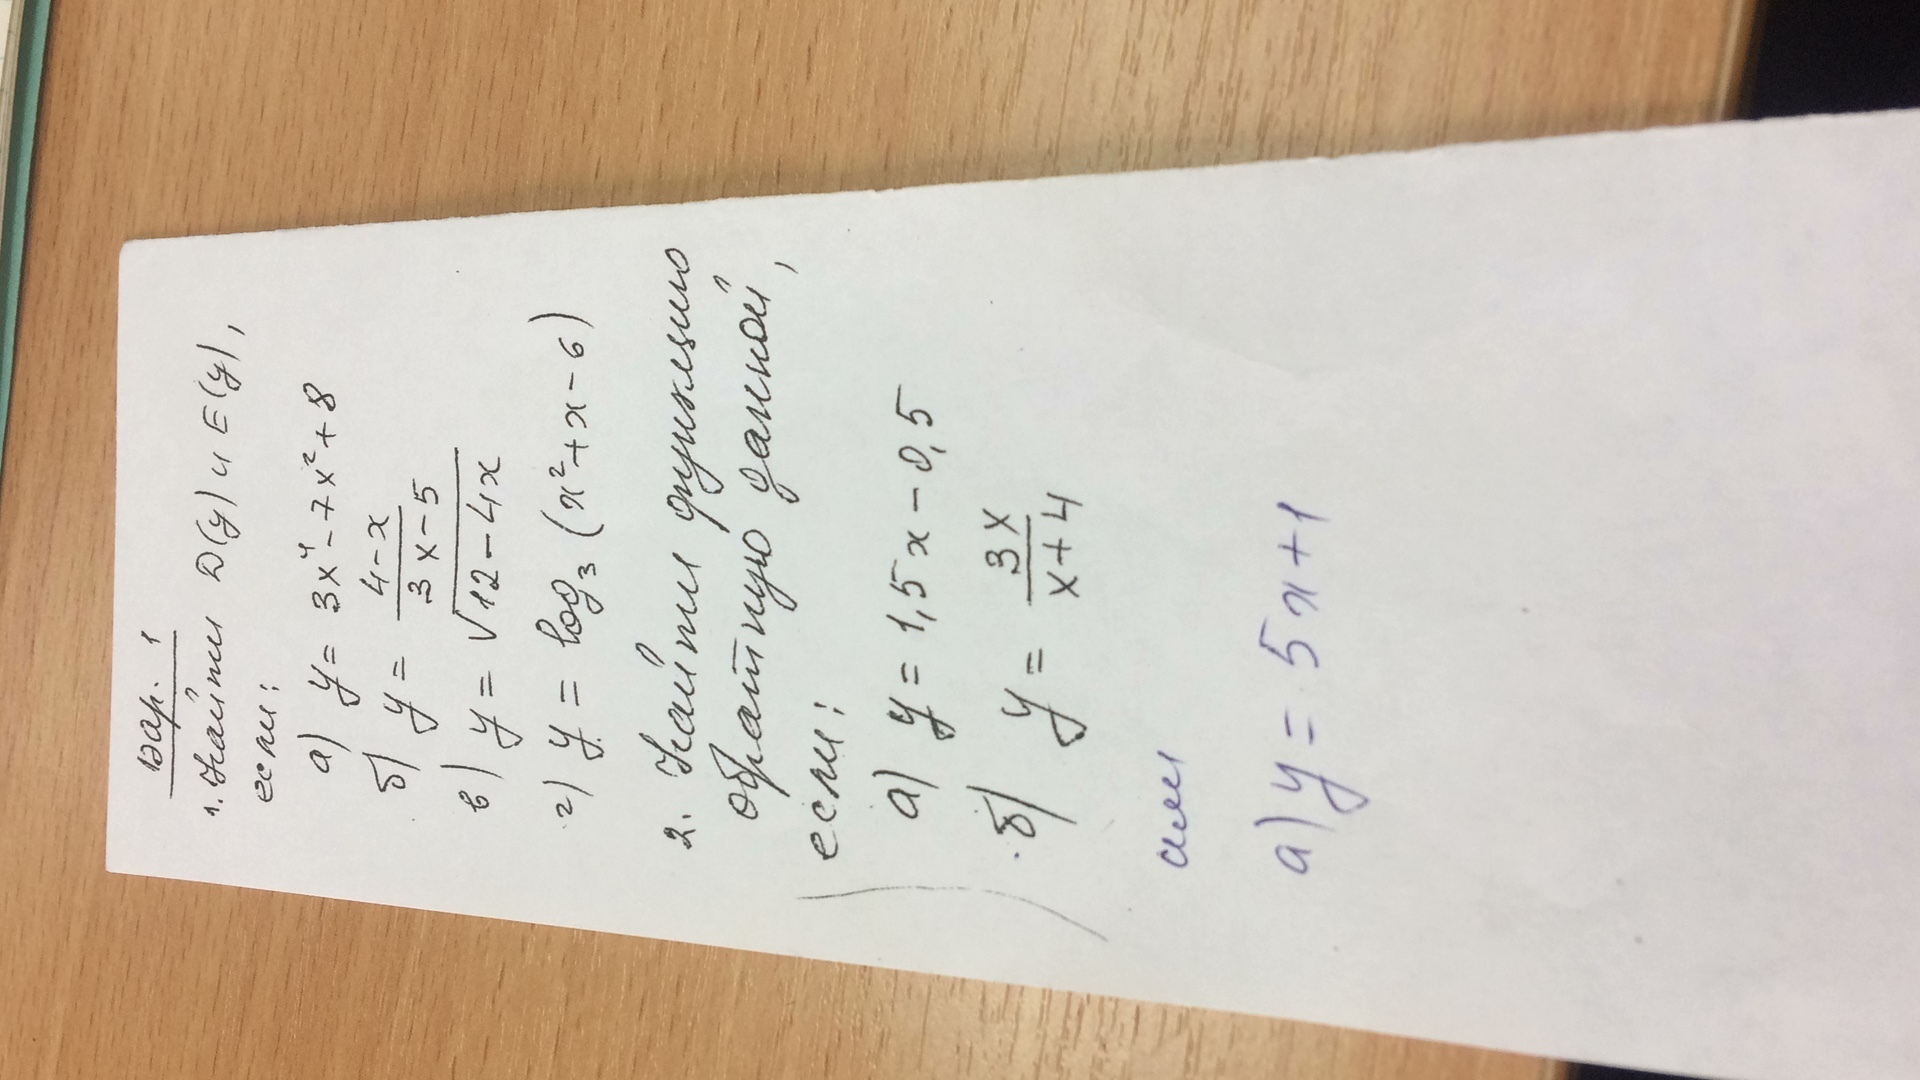 Вар. 1
1. Найти D(y) и E(y),
если:
а) y = 3x⁴ - 7x² + 8
б) y = (4-x)/(3x-5)
в) y = √(12-4x)
г) y = log₃(x²+x-6)
2. Найти функцию
обратную данной,
если:
а) y = 1,5x - 0,5
б) y = 3x/(x+4)
или
а) y = 5x+1